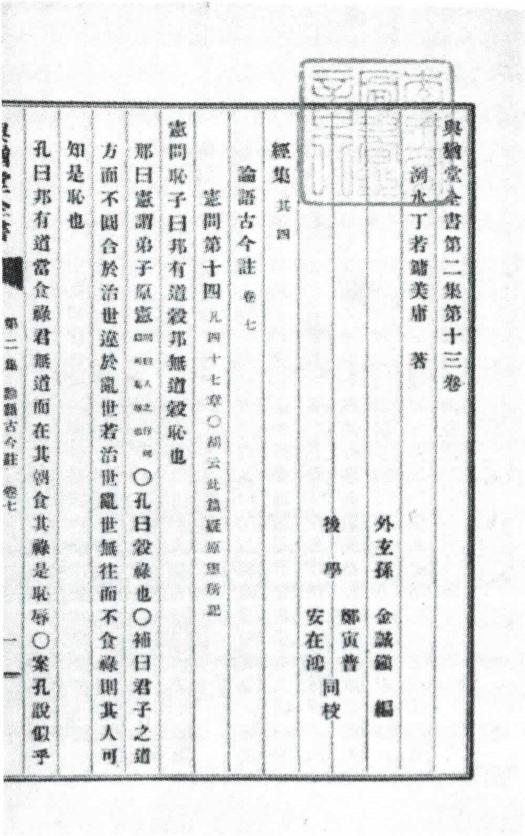 與猶堂全書第二集第十三卷
洌水丁若鏞美庸 著
外玄孫 金誠鎭 編
後學 鄭寅普
安在鴻 同校
經集 其四
論語古今註 卷七
憲問第十四 凡四十七章○胡云此篇疑原憲所記
憲問恥子曰邦有道穀邦無道穀恥也
邢曰憲謂弟子原憲 ○孔曰穀祿也○補曰君子之道
方而不圓合於治世違於亂世若治世亂世無往而不食祿則其人可
知是恥也
孔曰邦有道當食祿君無道而在其朝食其祿是恥辱○案孔說似乎
與猶堂全書
第二集 論語古今註 卷七
一